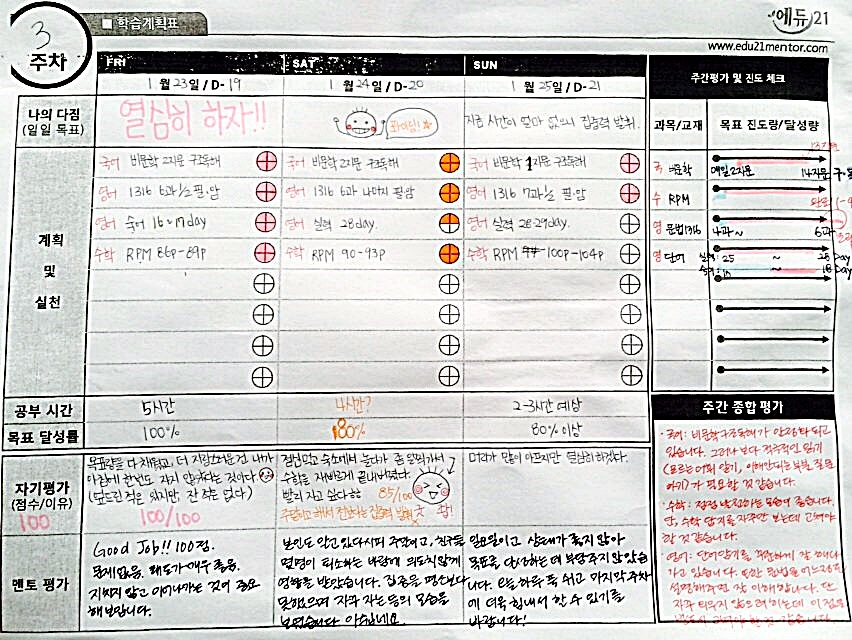 3
주차
학습계획표
에듀21
www.edu21mentor.com
FRI SAT SUN
1월 23일 / D-19 1월 24일 / D-20 1월 25일 / D-21
주간평가 및 진도 체크
나의 다짐
(일일 목표)
열심히 하자!!
화이팅!
지금 시간이 얼마 없으니 집중력 발휘.
과목/교재 목표 진도량/달성량
계획
및
실천
국어 비문학 2지문 구조독해 국어 비문학 2지문 구조독해 국어 비문학 1지문 구조독해
영어 1316 6과 1/2 필·암 영어 1316 6과 나머지 필·암 영어 1316 7과 1/2 필·암
영어 숙어 16~17day 영어 실력 28day. 영어 실력 28-29day.
수학 RPM 86p-89p 수학 RPM 90-93p 수학 RPM 100p-104p
국 비문학 매일 2지문 14지문
수 RPM
영 문법1316 4과~ 6과
영 단어 실력: 25 ~ 28 Day
숙어: 10 ~ 18 Day
공부 시간 5시간 4시간? 2-3시간 예상
목표 달성률 100% 80% 80% 이상
자기평가
(점수/이유)
100
목표량을 다 채웠고, 더 자랑스러운 건 내가
아침에 한번도 자지 않았다는 것이다
(남드린 적은 있지만, 잔 적은 없다)
100/100
수학을 재빠르게 끝내버렸다.
빨리 자고 싶다
85/100
머리가 많이 아프지만 열심히 하겠다.
멘토 평가
Good Job!! 100점.
문제없음. 태도가 매우 좋음.
지치지 말고 이어나가는 것이 중요
해보입니다.
본인도 알고 있다시피 주말이고, 친구들
몇명이 퇴소하는 바람에 의도치 않게
영향을 받았습니다. 집중을 평소보다
못했으며 자주 자는 등의 모습을
보였습니다. 아쉽네요.
일요일이고 상태가 좋지 않아
목표를 달성하는 데 부담주지 않았습
니다. 오늘 하루 푹 쉬고 마지막 주차
에 더욱 힘내서 할 수 있기를
바랍니다!
주간 종합 평가
·국어: 비문학 구조독해가 안정화 되고
있습니다. 그러나 보다 적극적인 읽기
(모르는 어휘 찾기, 이해안되는 부분 질문
하기)가 필요할 것 같습니다.
·수학: 점점 발전하는 모습이 좋습니다.
단, 수학 답지를 자주 안 보는데 고쳐야
할 것 같습니다.
·영어: 단어암기를 꾸준하게 잘 해나
가고 있습니다. 또한 문법을
설명해주면 잘 이해합니다. 단